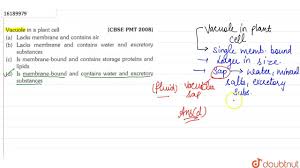 16189979
Vacuole in a plant cell (CBSE PMT 2008)
(a) Lacks membrane and contains air
(b) Lacks membrane and contains water and excretory substances
(c) Is membrane-bound and contains storage proteins and lipids
(d) Is membrane-bound and contains water and excretory substances
Vacuole in plant cell
single memb. bound
larger in size.
sap → water, mineral salts, excretory subs.
(fluid) vacuolar sap
Ans(d)
doubtnut